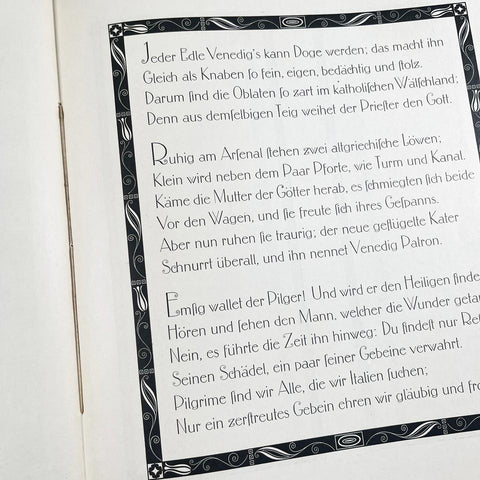 Jeder Edle Venedig's kann Doge werden; das macht ihn
Gleich als Knaben ſo fein, eigen, bedächtig und ſtolz.
Darum ſind die Oblaten ſo zart im katholiſchen Wälſchland;
Denn aus demſelbigen Teig weihet der Prieſter den Gott.
Ruhig am Arſenal ſtehen zwei altgriechiſche Löwen;
Klein wird neben dem Paar Pforte, wie Turm und Kanal.
Käme die Mutter der Götter herab, es ſchmiegten ſich beide
Vor den Wagen, und ſie freute ſich ihres Geſpanns.
Aber nun ruhen ſie traurig; der neue geflügelte Kater
Schnurrt überall, und ihn nennet Venedig Patron.
Emſig wallet der Pilger! Und wird er den Heiligen finde
Hören und ſehen den Mann, welcher die Wunder geta
Nein, es führte die Zeit ihn hinweg: Du findeſt nur Re
Seinen Schädel, ein paar ſeiner Gebeine verwahrt.
Pilgrime ſind wir Alle, die wir Italien ſuchen;
Nur ein zerſtreutes Gebein ehren wir gläubig und fro